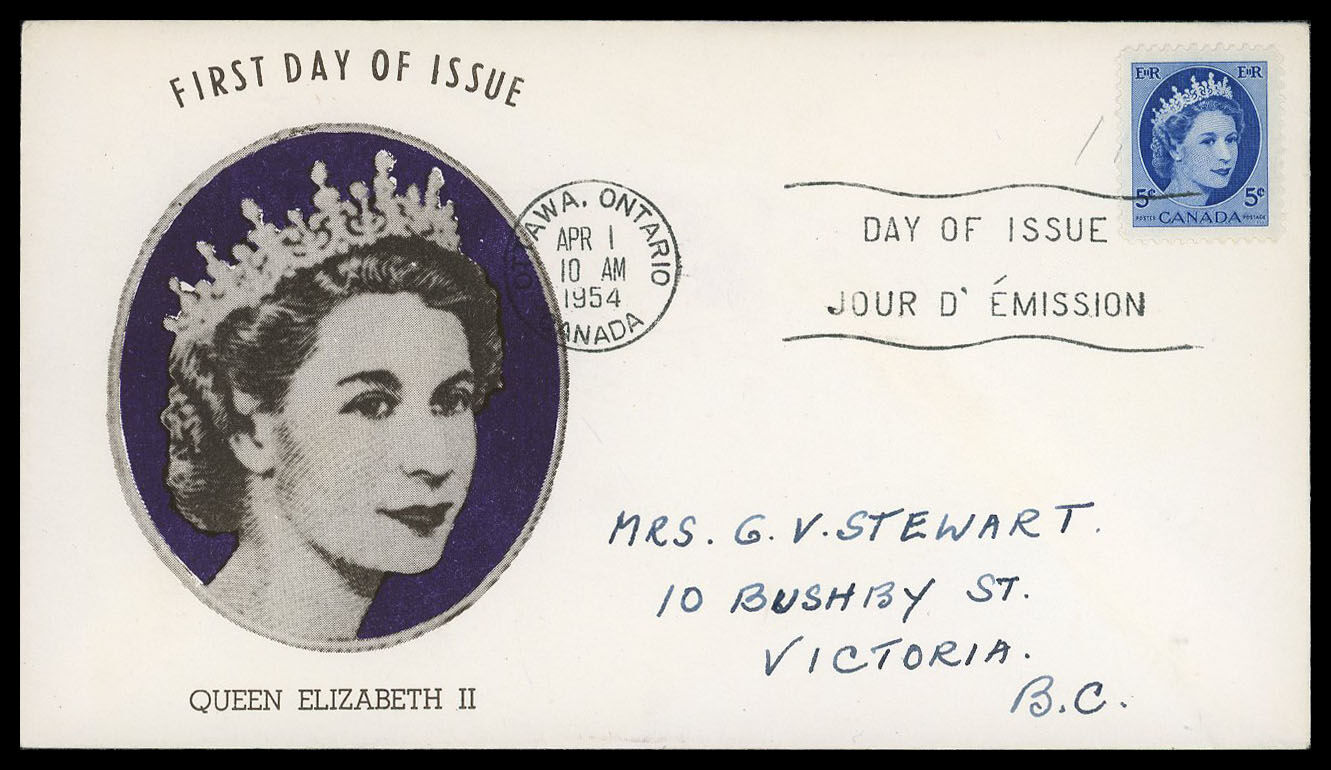 FIRST DAY OF ISSUE
EIIR EIIR
5¢ 5¢
POSTES CANADA POSTAGE
OTTAWA, ONTARIO
APR 1
10 AM
1954
CANADA
DAY OF ISSUE
JOUR D' ÉMISSION
MRS. G. V. STEWART.
10 BUSHBY ST.
VICTORIA.
B.C.
QUEEN ELIZABETH II